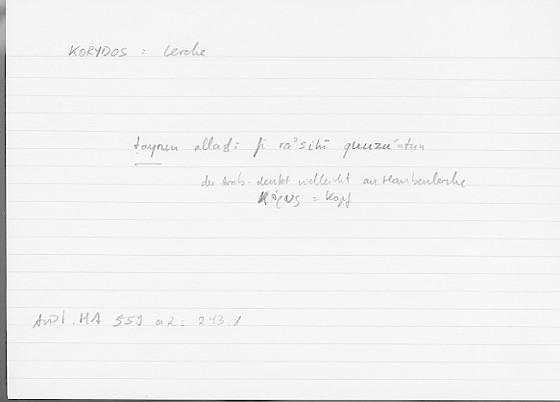 KORYDOS : Lerche
ṭayrun alladī fī ra'sihi qunzu'atun
der Arab. denkt vielleicht an Haubenlerche
= Kopf
Arist. HA 559 a 2 : 243.1